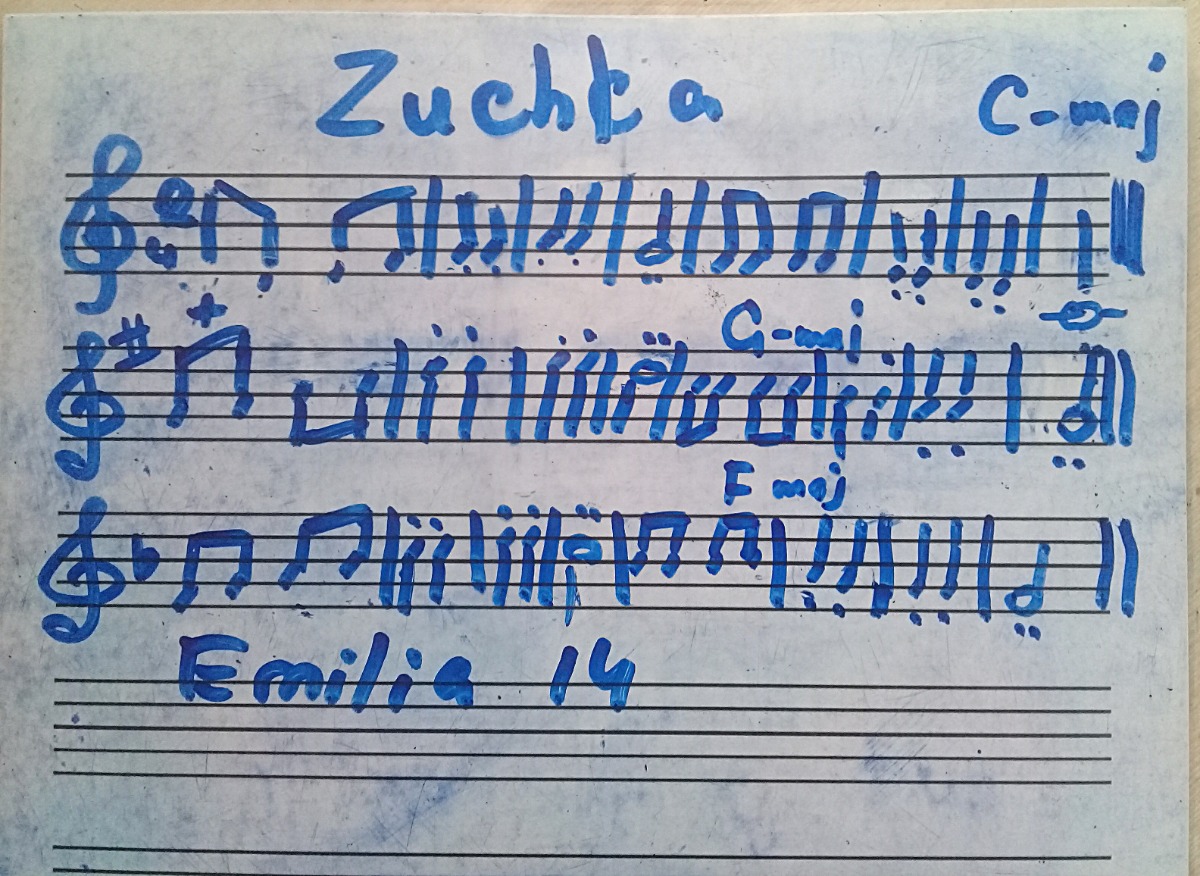 Zuchka
C-maj
2
4
G-maj
F maj
Emilia 14